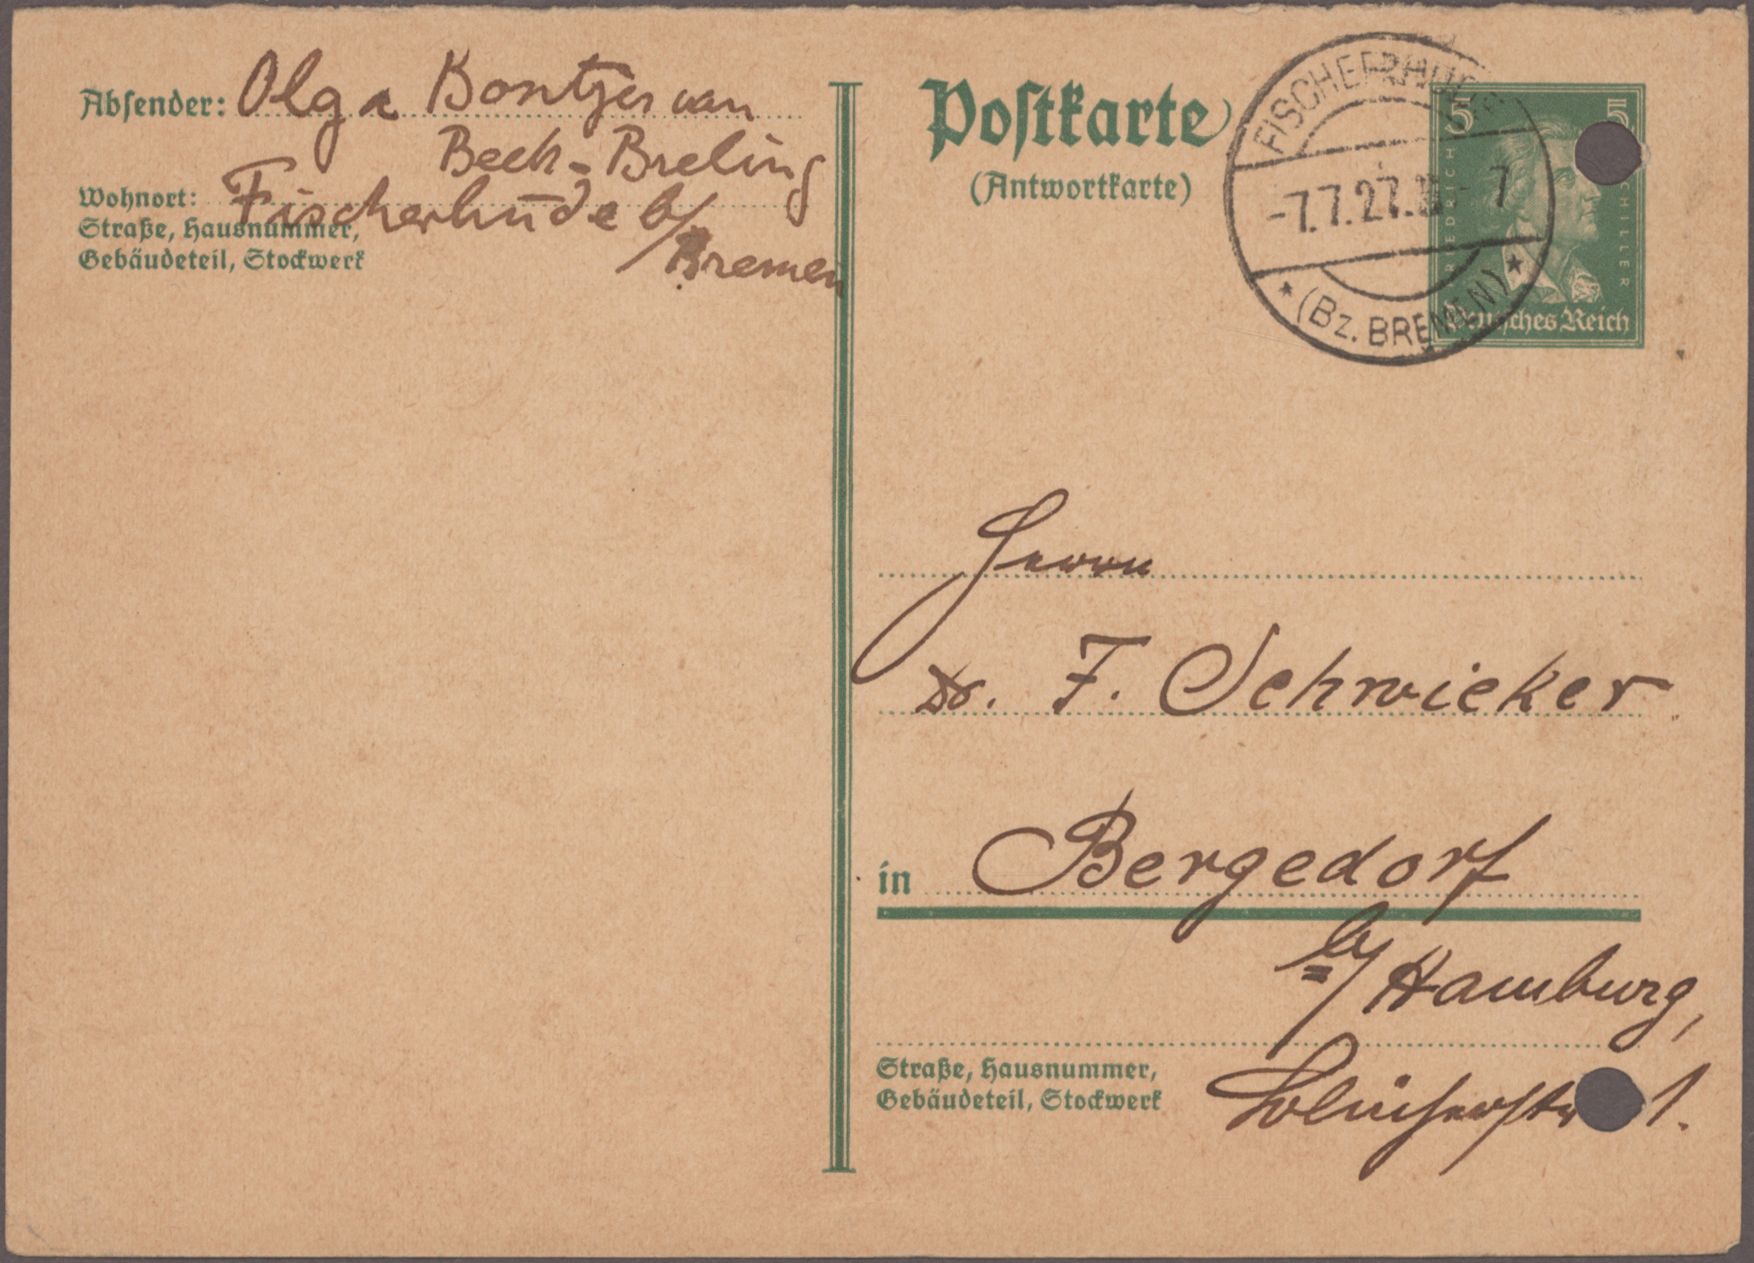 Absender: Olga Bontjes van
Beek-Breling
Wohnort: Fischerhude b/
Bremen
Straße, Hausnummer,
Gebäudeteil, Stockwerk
Postkarte
(Antwortkarte)
FISCHERHUDE
-7.7.27.
7
(Bz. BREMEN)
5 5
FRIEDRICH SCHILLER
Deutsches Reich
Herrn
Dr. F. Schwieker
in Bergedorf
b/Hamburg,
Straße, Hausnummer,
Gebäudeteil, Stockwerk
1.